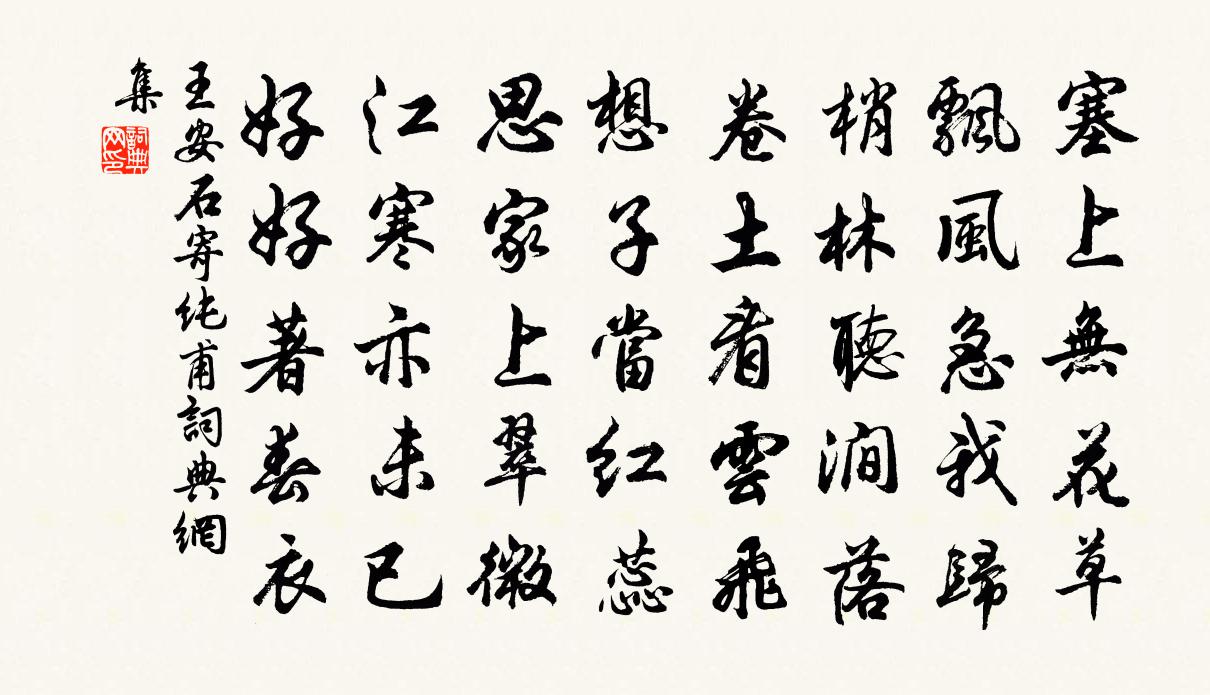 塞上無花草
飄風急我歸
梢林聽澗落
卷土看雲飛
想子當紅蕊
思家上翠微
江寒亦未已
好好著春衣
王安石寄純甫詞典網
集
詞典
网印